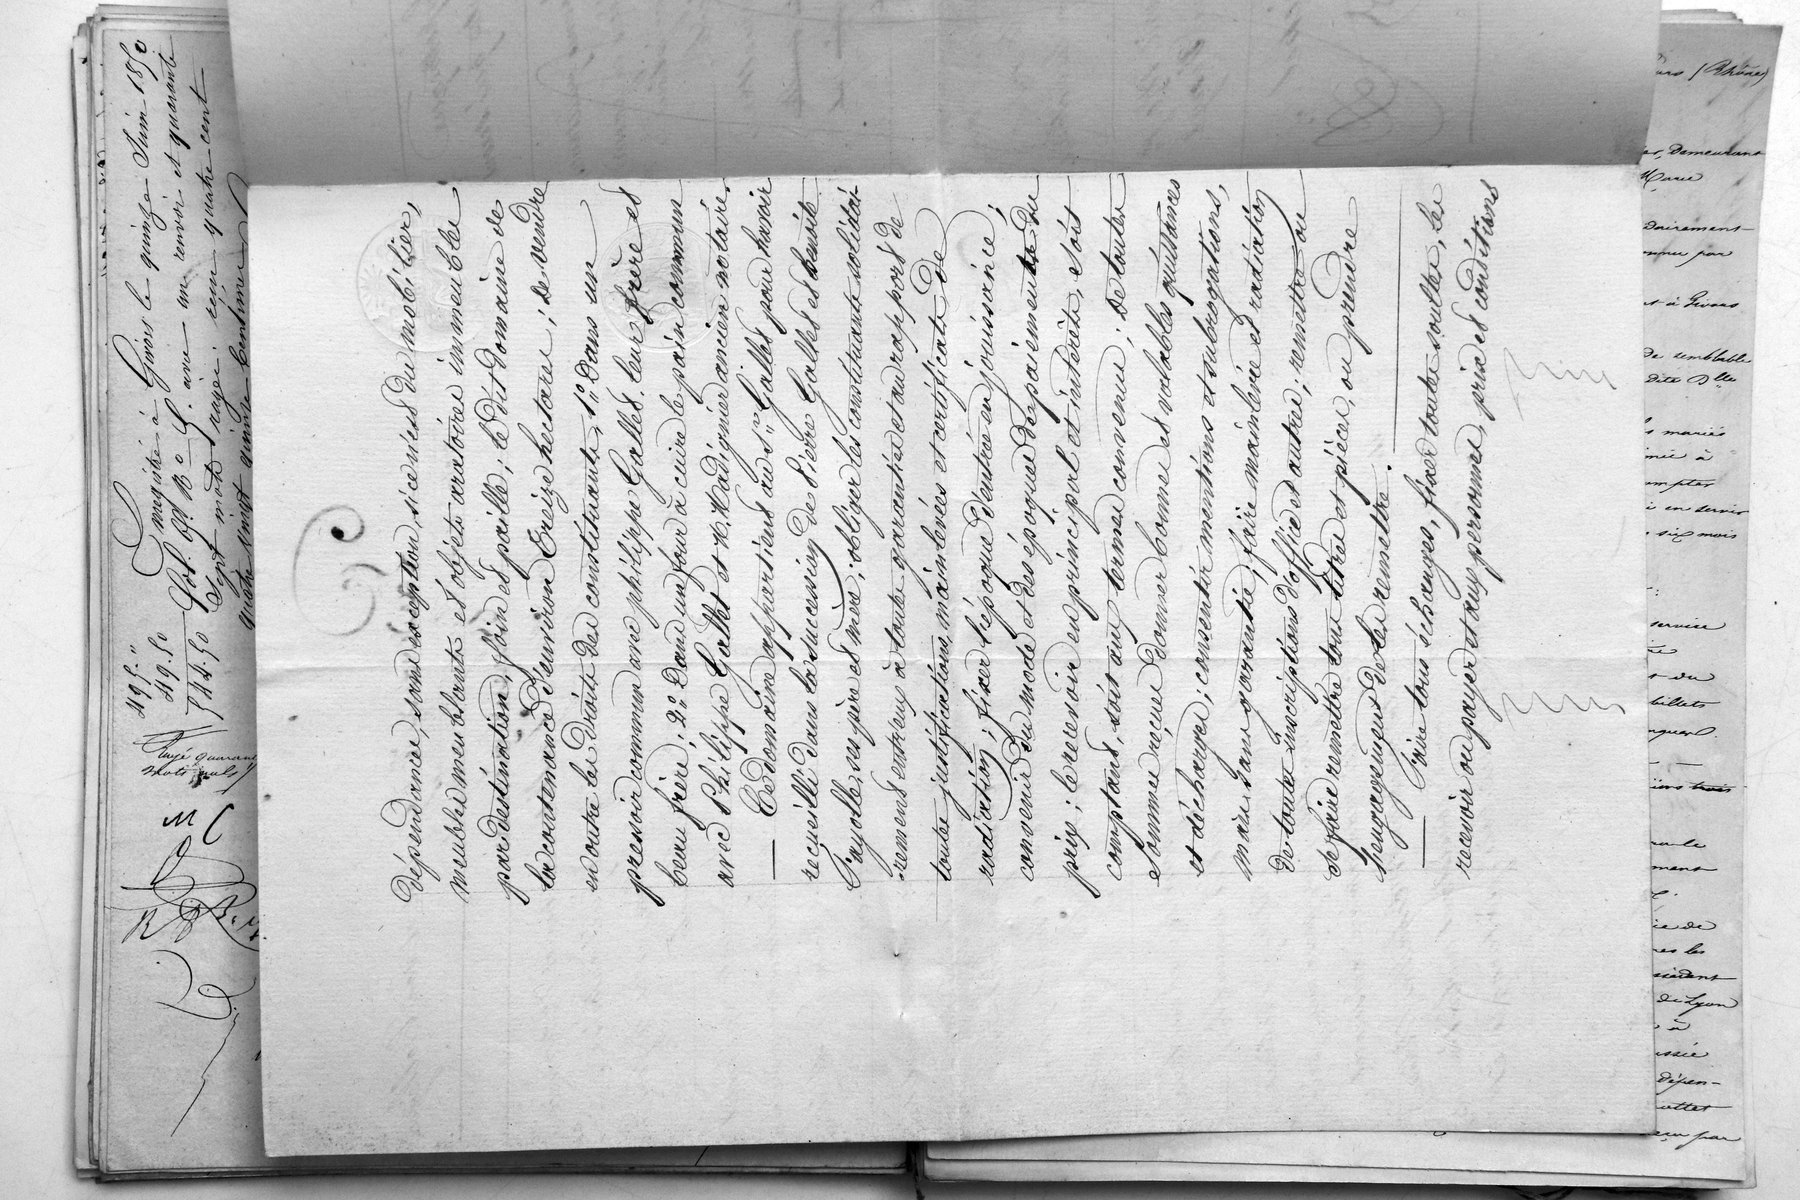 dépendances, sans exception, si ce n'est du mobilier,
meubles meublants et objets aratoires immeubles
par destination, foin et paille ; le dit domaine de
la contenance d'environ treize hectares ; de vendre
en outre les droits des constituants, 1°. dans un
pressoir commun avec philippe Gallet, leur frère et
beau frère ; 2°. dans un four à cuire le pain commun
avec Philippe Gallet et M. Madignier ancien notaire.
— Ce domaine appartient au Sr. Gallet pour l'avoir
recueilli dans la succession de Pierre Gallet et Benoîte
Cayolle, ses père et mère ; obliger les constituants solidai-
rement entr'eux à toute garantie et au rapport de
toutes justifications, mainlevées et certificats de
radiation ; fixer l'époque d'entrée en jouissance ;
convenir du mode et des époques de paiement du
prix ; le recevoir en principal et intérêts, soit
comptant, soit aux termes convenus ; de toutes
sommes reçues donner bonnes et valables quittances
et décharges ; consentir mentions et subrogations,
mais sans garantie, faire mainlevée et radiation
de toutes inscriptions d'office et autres ; remettre ou
se faire remettre tous titres et pièces, ou prendre
l'engagement de les remettre.
— Faire tous échanges, fixer toutes soultes, les
recevoir ou payer et aux personnes, prix et conditions
Enregistré à Givors le quinze Juin 1850
fol. 69. Ro. C. avec un renvoi et quarante
sept mots rayés. reçu quatre cent
quatre vingt quinze centimes
495. "
49. 50
544. 50
Rayé quarante
mots nuls
M C
R
Givors (Rhône)
demeurant
Marie
dairement
à Givors
de semblable
dite Dlle
mariés
à
compter
en service
six mois
service
du
billets
trois
de
les
de Lyon
à
dépen-
par